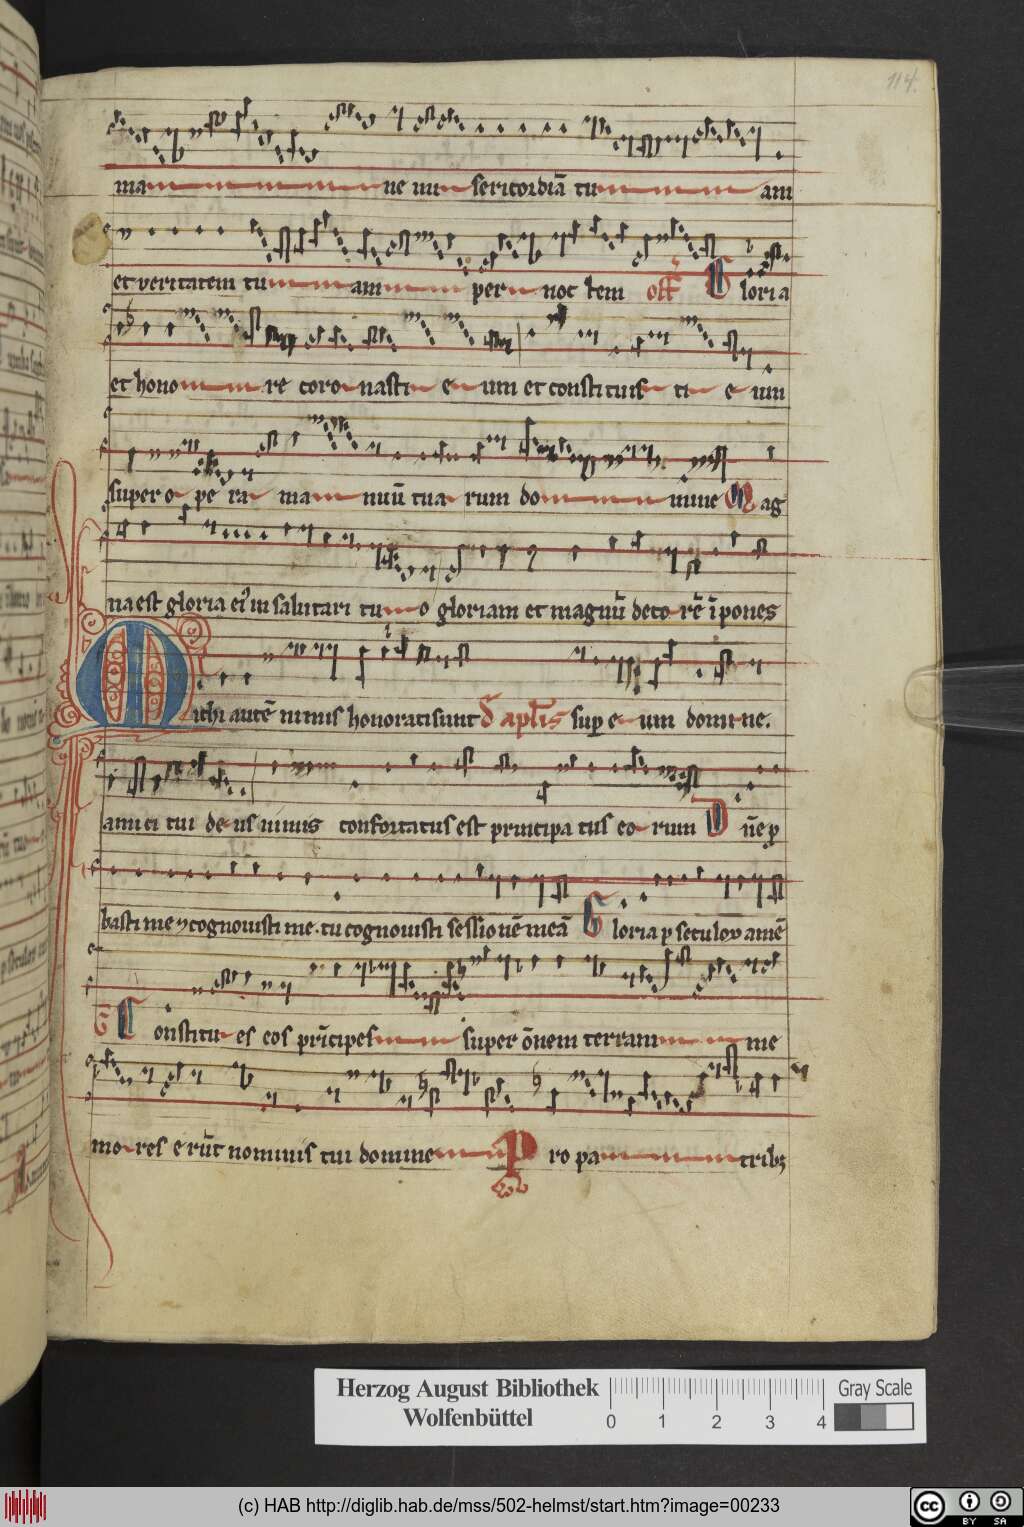 114.
ma ne mi sericordiā tu am
et veritatem tu am per noc tem off Gloria
et hono re coro nasti e um et constituisti e um
super o pe ra ma nuū tua rum domine Mag
na est gloria ei' in salutari tu o gloriam et magnū deco rē īpones
Michi autē nimis honorati sunt sup e um domine.
amici tui de us nimis confortatus est principa tus eo rum Dn̄e ꝓ
basti me ⁊ cognouisti me. tu cognouisti sessionē meā Gloria amē
Constitu es eos prīcipes super ōnem terram me
mo res erūt nominis tui domine Pro pa tribꝫ
Herzog August Bibliothek
Wolfenbüttel
0 1 2 3 4
Gray Scale
(c) HAB http://diglib.hab.de/mss/502-helmst/start.htm?image=00233
cc BY SA